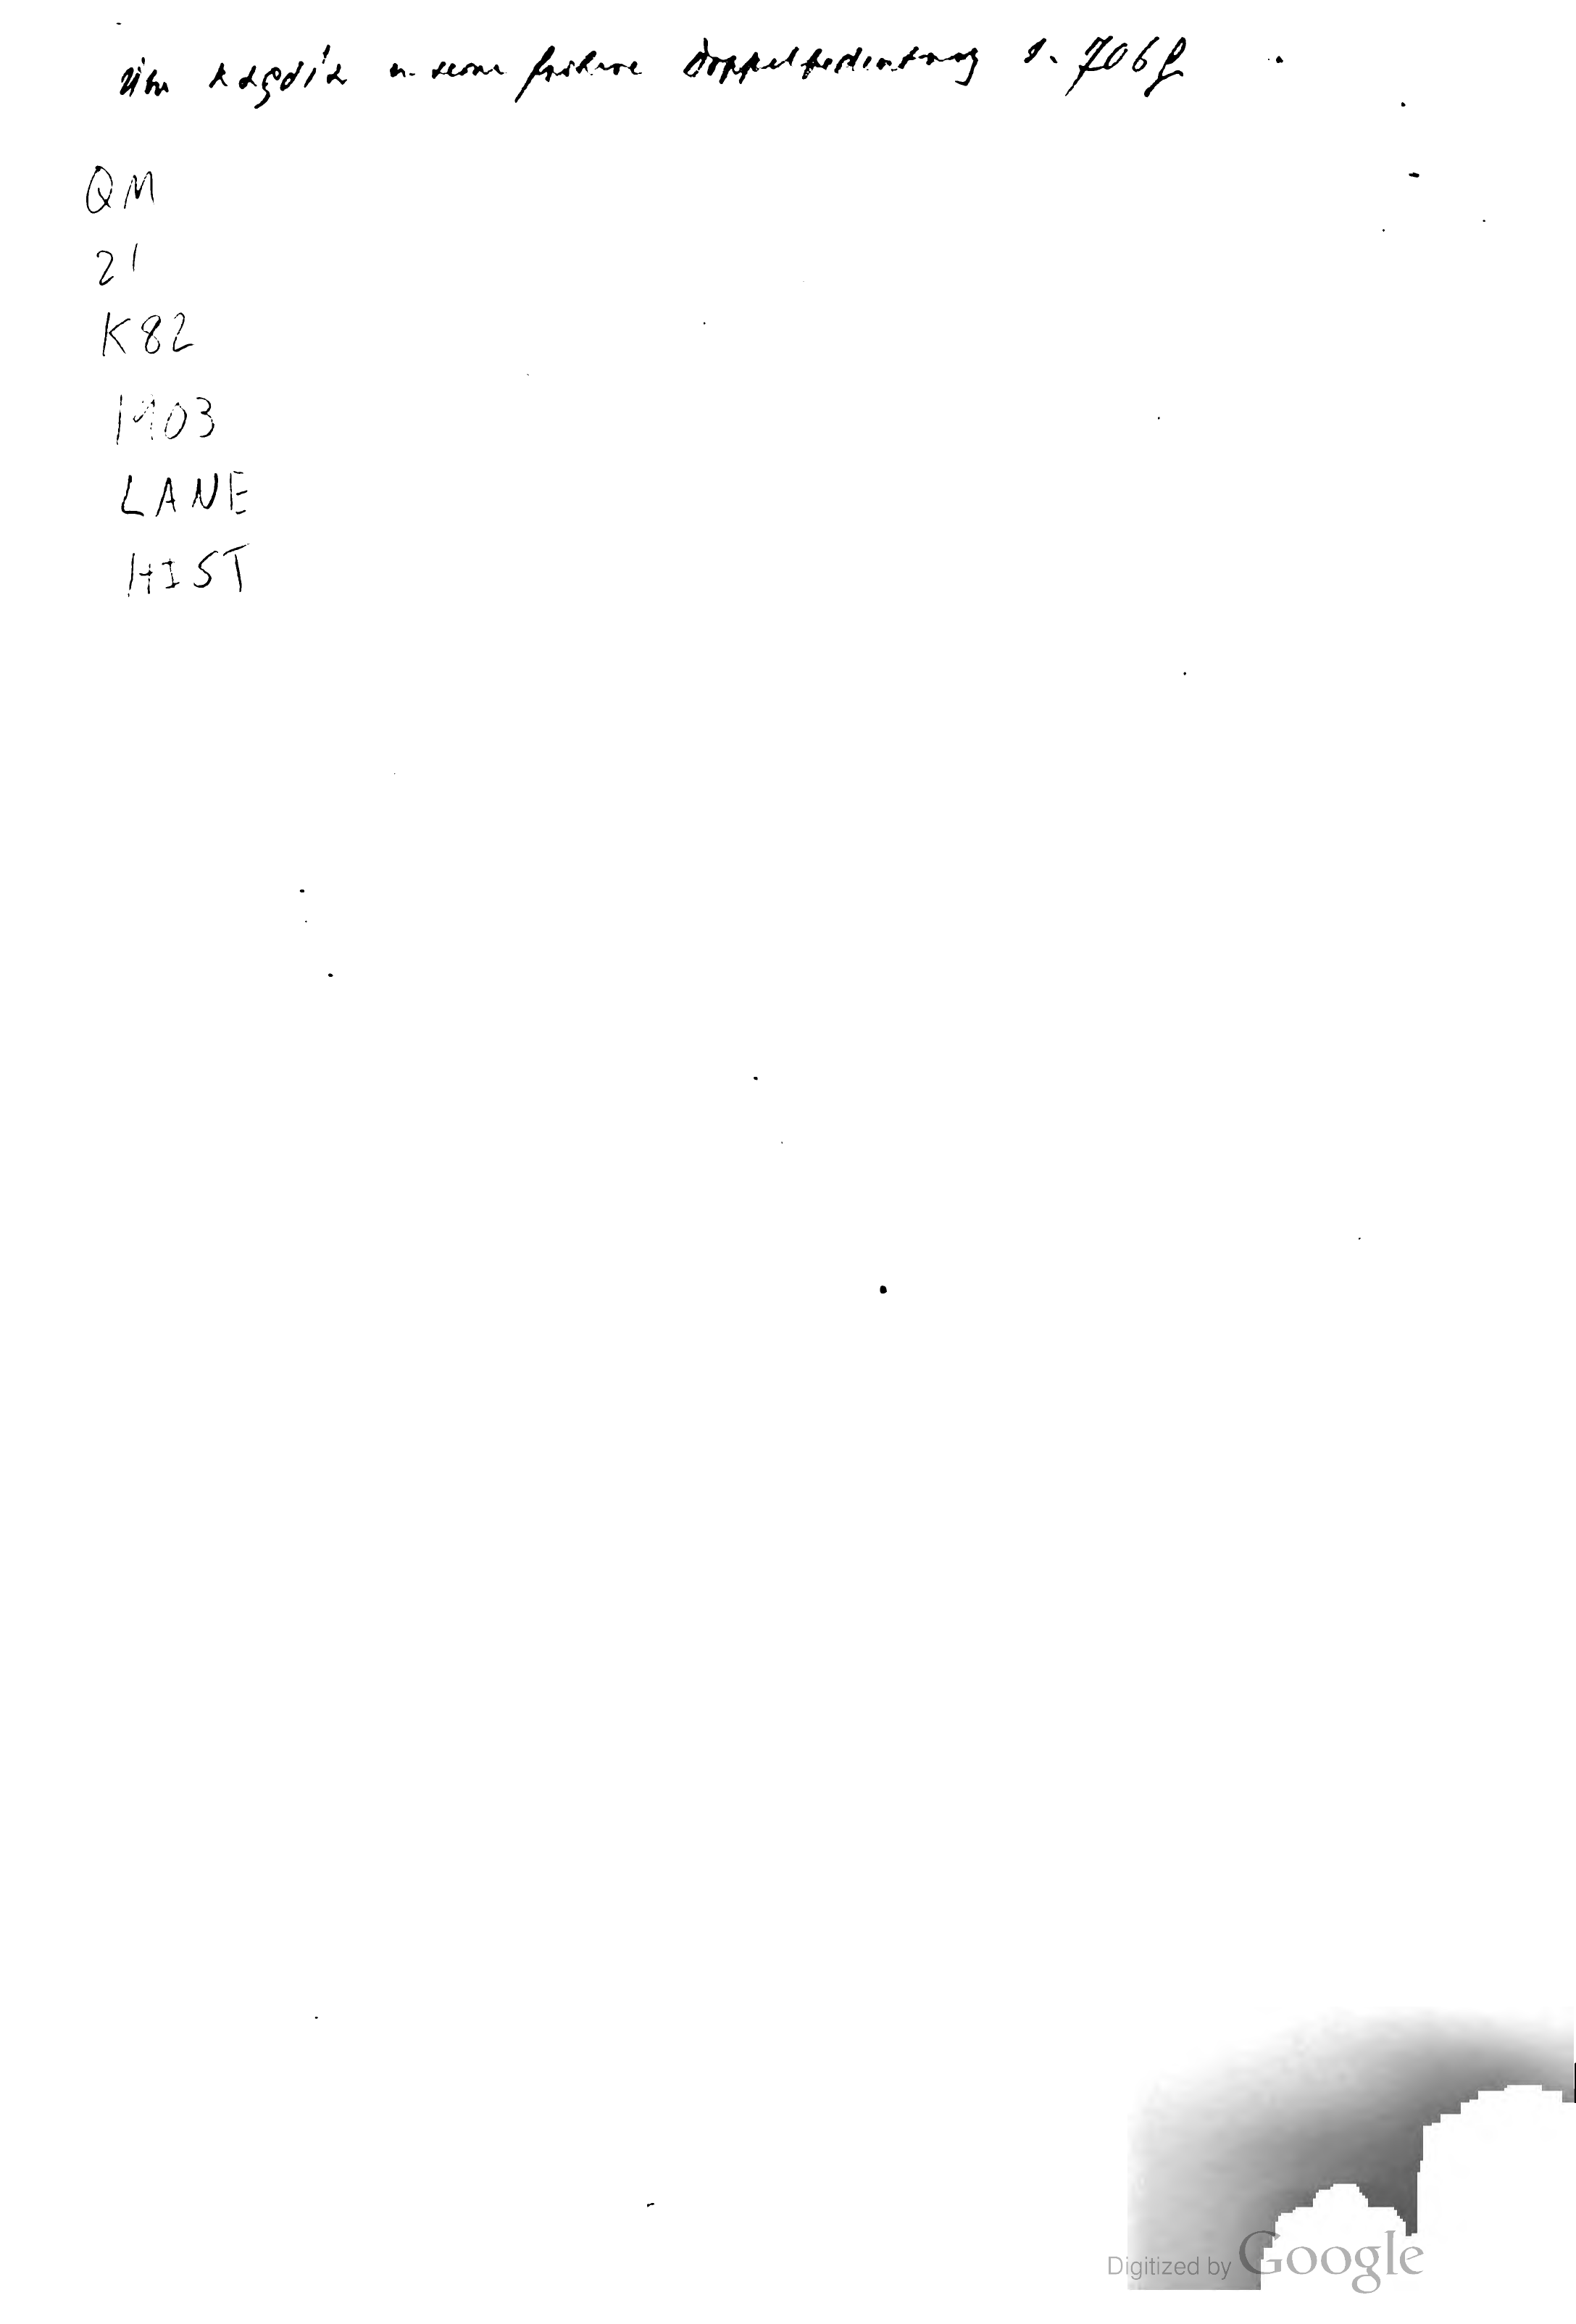 über καρδία u. seine frühere Doppelbedeutung s. 706 f.
QM
21
K82
1903
LANE
HIST
Digitized by Google